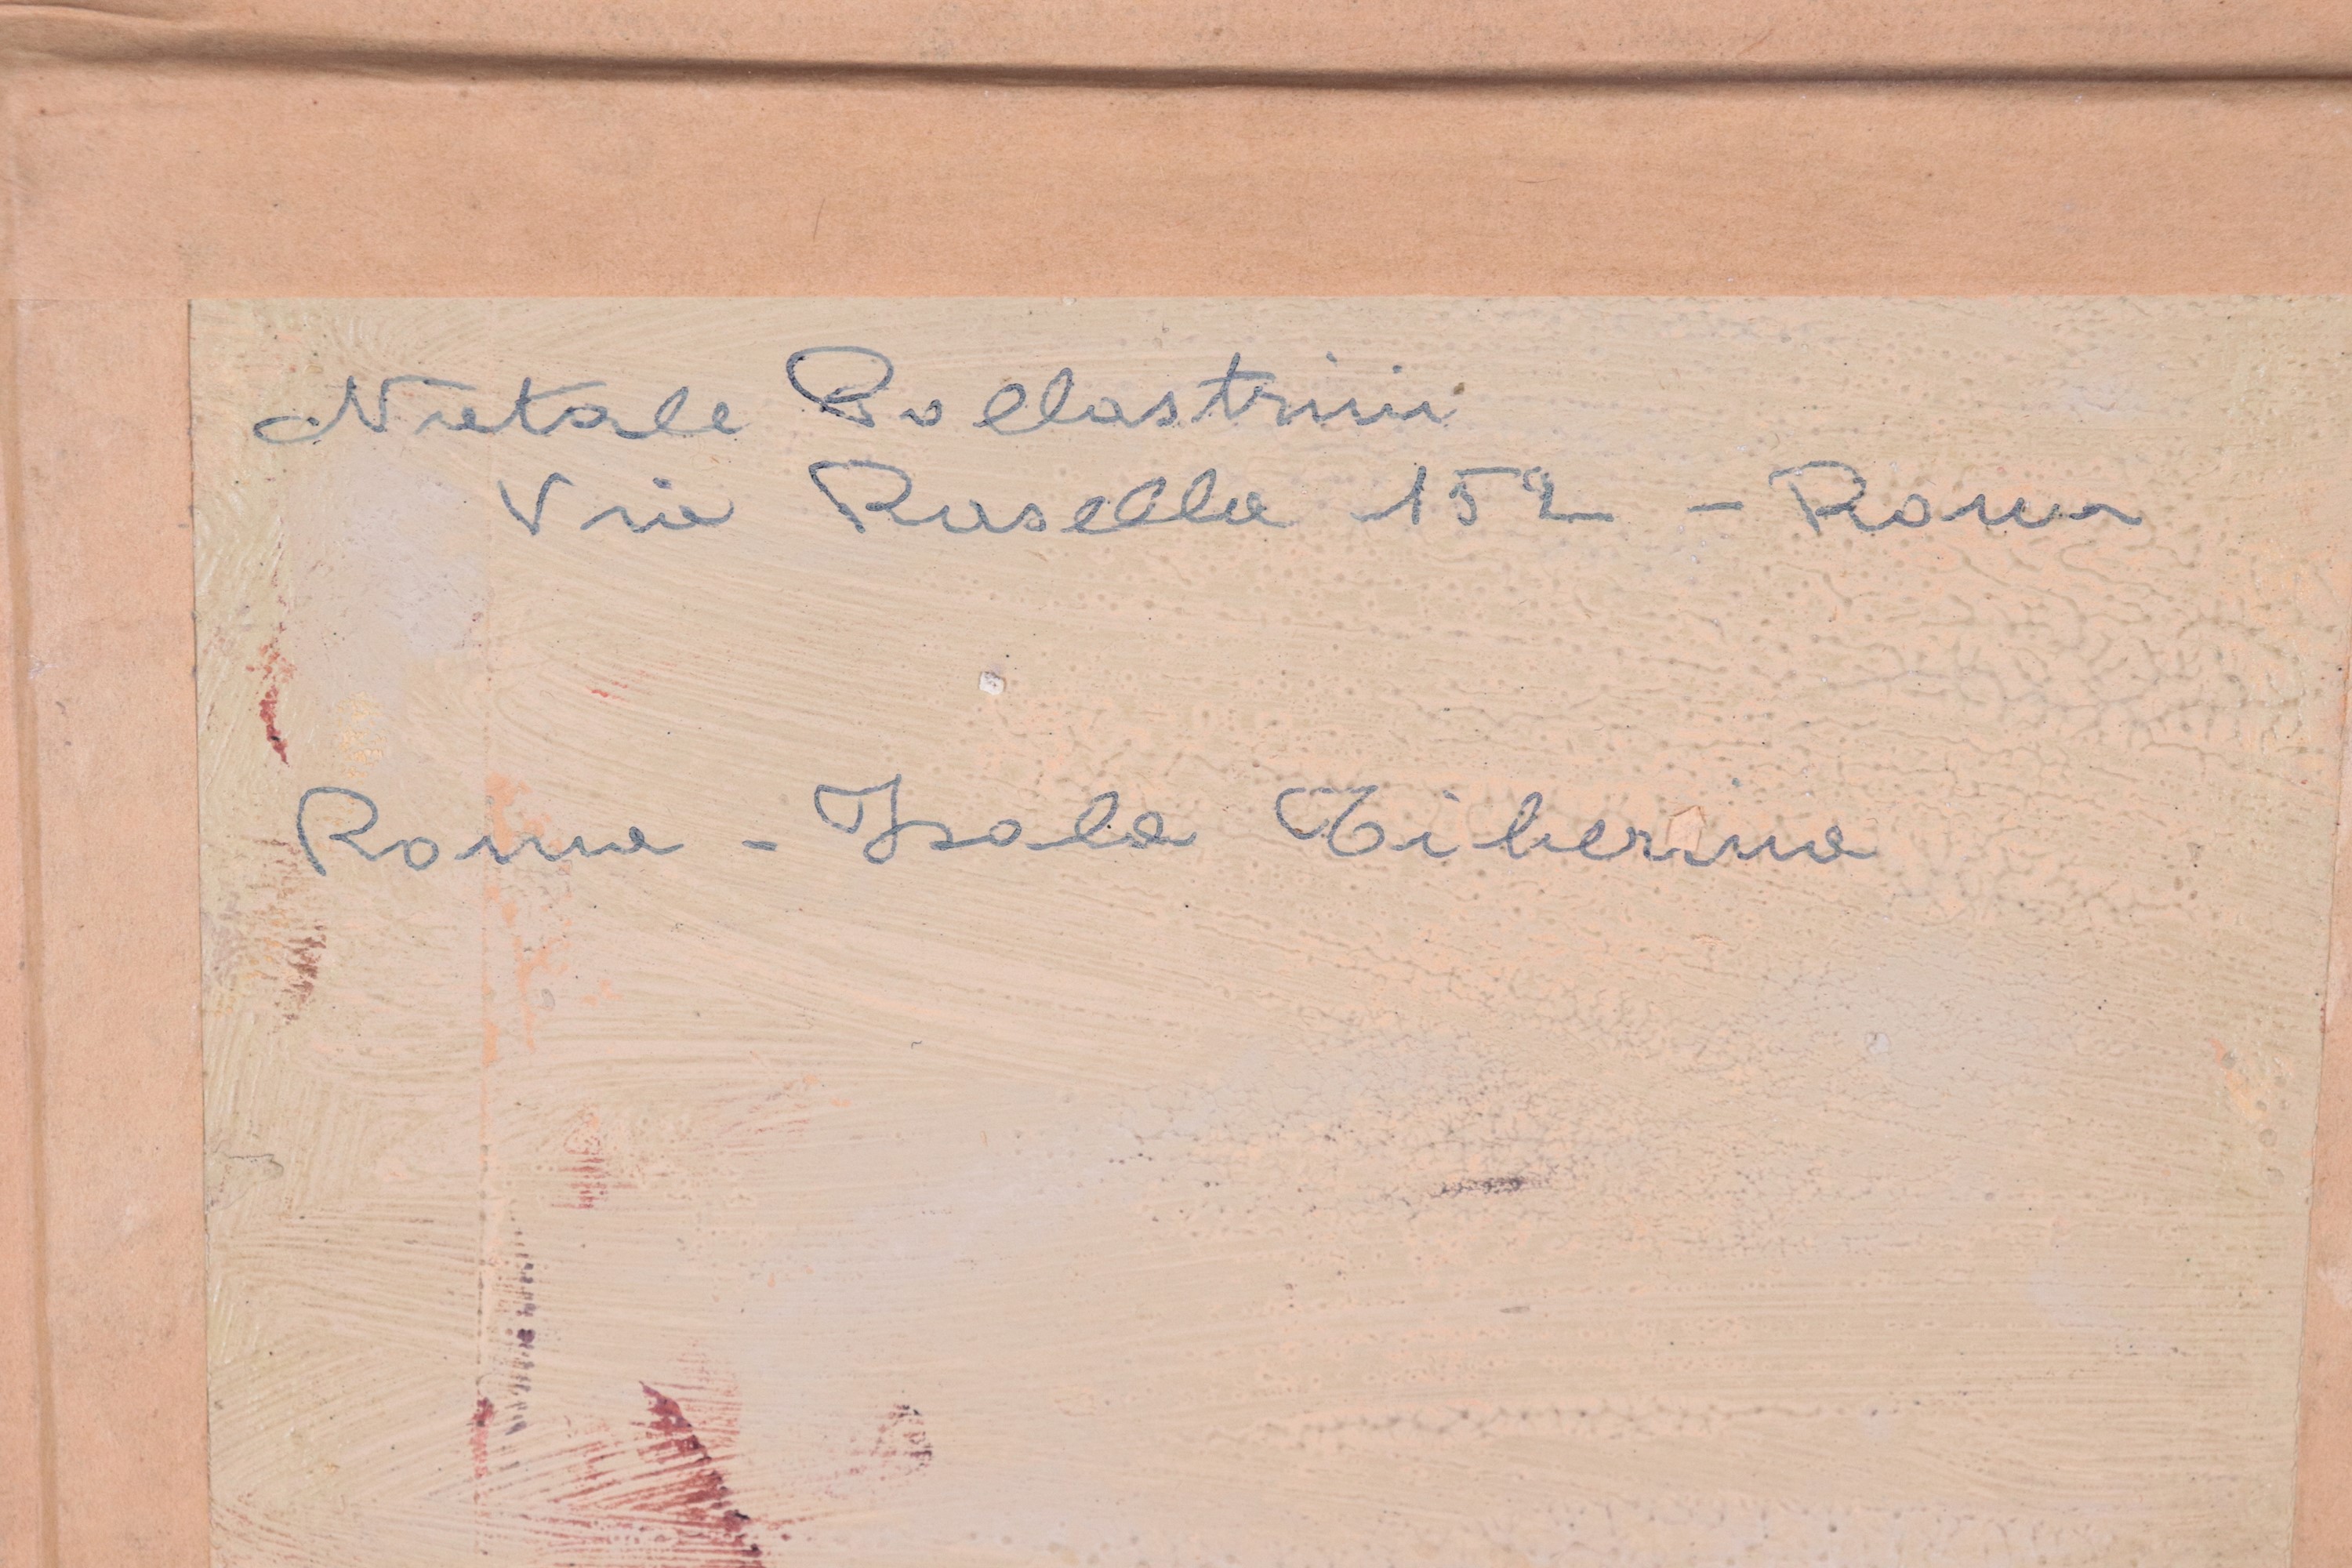 Natale Pollastrini
Via Rusella 152 - Roma
Roma - Isola Tiberina